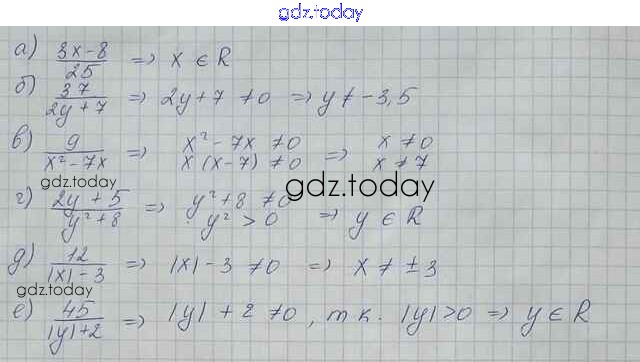 gdz.today
а) (3x-8)/25 => x ∈ R
б) 37/(2y+7) => 2y+7 ≠0 => y ≠ -3,5
в) 9/(x²-7x) => x²-7x ≠0 x(x-7) ≠0 => x ≠0 x ≠7
gdz.today
gdz.today
г) (2y+5)/(y²+8) => y²+8 ≠0 y² > 0 => y ∈ R
д) 12/(|x|-3) => |x|-3 ≠0 => x ≠ ±3
gdz.today
е) 45/(|y|+2) => |y|+2 ≠0, т.к. |y|>0 => y ∈ R